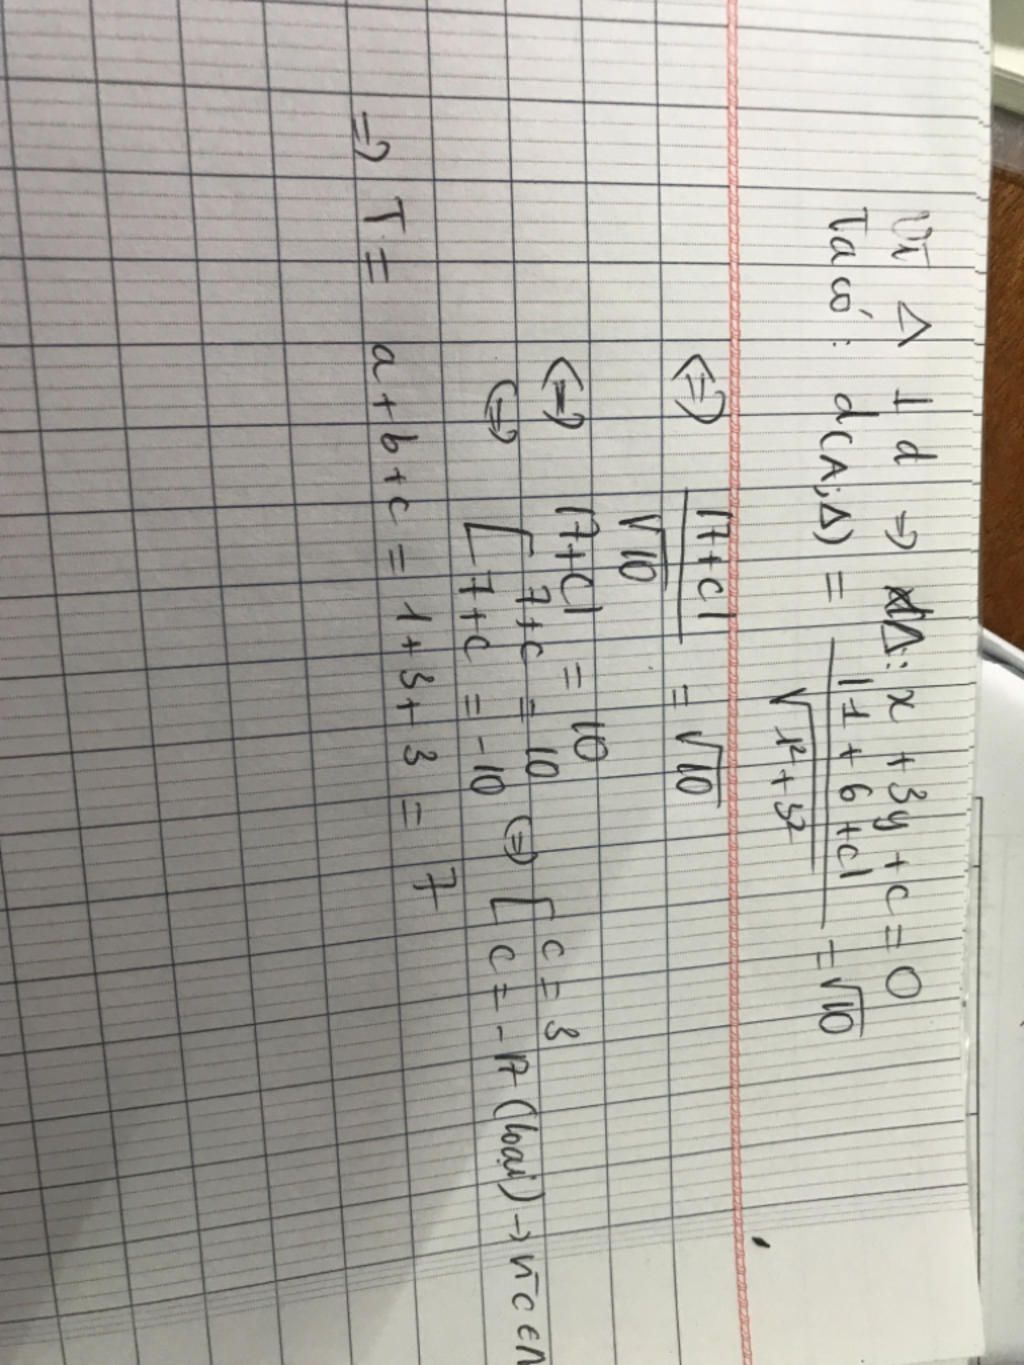 Vì Δ ⊥ d => Δ: x + 3y + c = 0
Ta có: d(A;Δ) = |1 + 6 + c| / √(1² + 3²) = √10
<=> |7 + c| / √10 = √10
<=> |7 + c| = 10
<=> [ 7 + c = 10 <=> [ c = 3
7 + c = -10 c = -17 (loại) → vì c ∈ N
=> T = a + b + c = 1 + 3 + 3 = 7